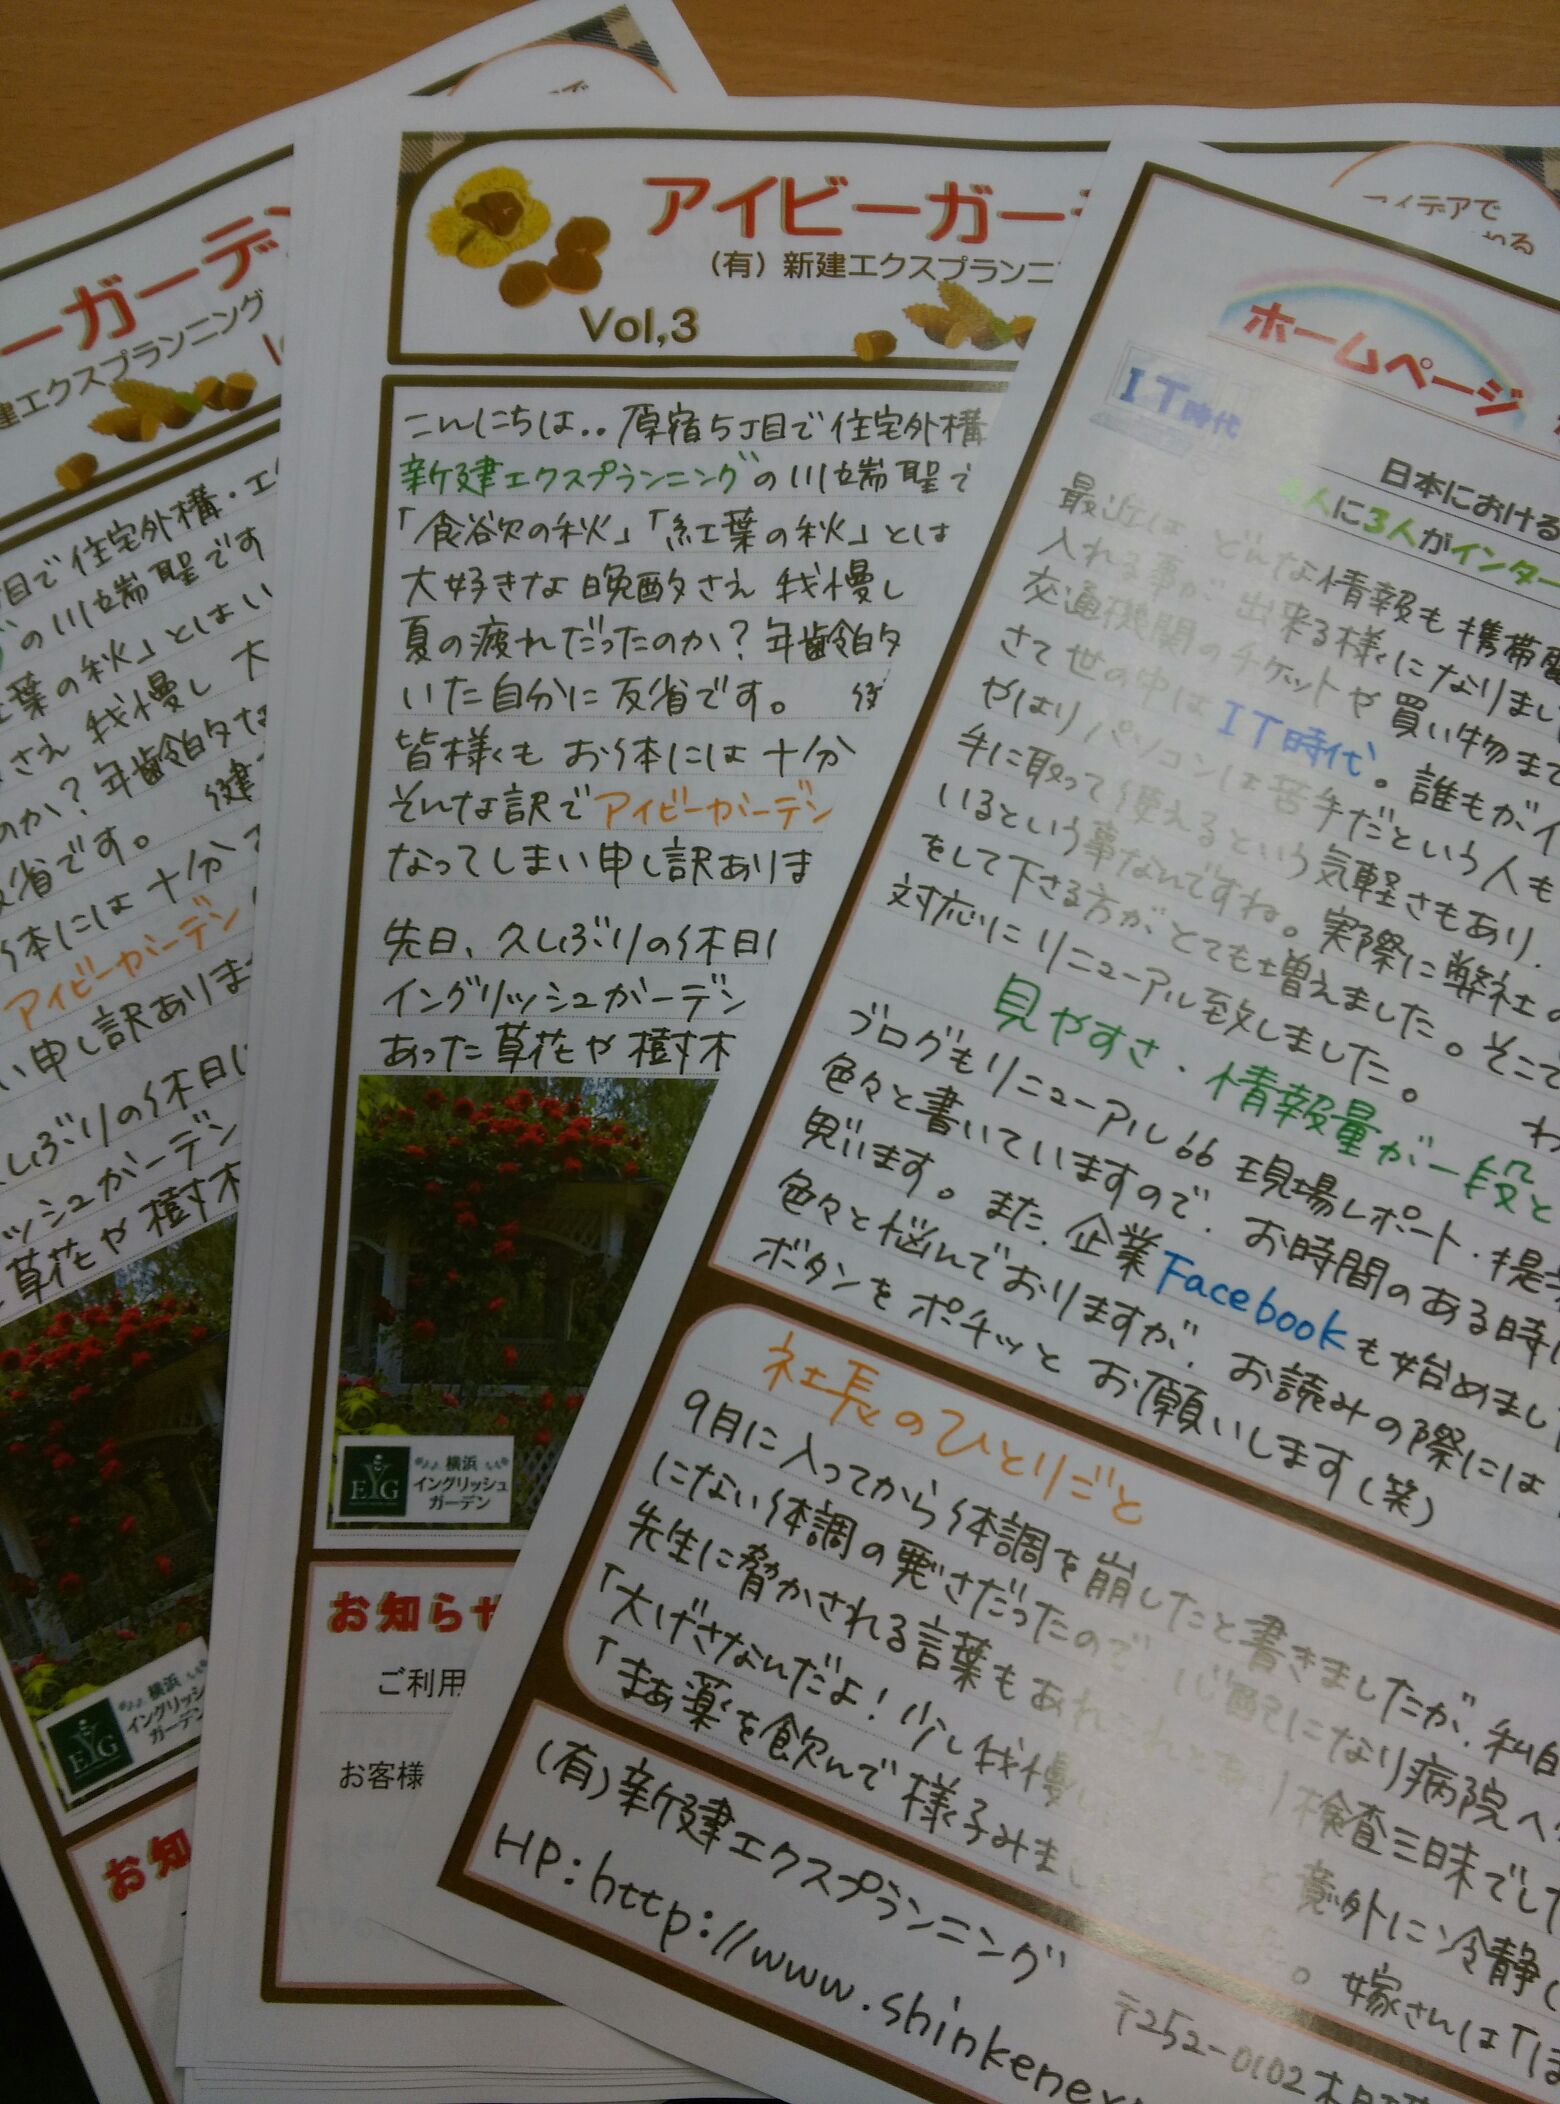 ーガーデン
建エクスプランニング
目で住宅外構・エ
の川端聖です
葉の秋」とはい
さえ我慢し 大
のか？年齢的な
省です。 健
体には十分
アイビーガーデン
い申し訳ありま
しぶりの休日
ッシュガーデン
草花や樹木
EYG
横浜
イングリッシュ
ガーデン
お知
アイビーガー
（有）新建エクスプランニ
Vol,3
こんにちは.. 原宿5丁目で住宅外構
新建エクスプランニングの川端聖で
「食欲の秋」「紅葉の秋」とは
大好きな晩酌さえ 我慢し
夏の疲れだったのか？年齢的
いた自分に反省です。 健
皆様も お体には十分
そんな訳でアイビーガーデン
なってしまい申し訳ありま
先日、久しぶりの休日に
イングリッシュガーデン
あった草花や樹木
EYG
横浜
イングリッシュ
ガーデン
お知らせ
ご利用
お客様
アイデアで
ホームページ
IT時代
日本における
4人に3人がインター
最近は どんな情報も携帯電
入れる事が出来る様になりまし
交通機関のチケットや買い物まで
さて世の中はIT時代。誰もがイ
やはりパソコンは苦手だという人も
手に取って使えるという気軽さもあり、
いるという事なんですね。実際に弊社の
をして下さる方がとても増えました。そこで
対応にリニューアル致しました。 わ
見やすさ・情報量が一段と
ブログもリニューアル66 現場レポート・提
色々と書いていますので、お時間のある時に
思います。また、企業Facebookも始めまし
色々と悩んでおりますが、お読みの際には
ボタンをポチッと お願いします(笑)
社長のひとりごと
9月に入ってから体調を崩したと書きましたが、私自
にない体調の悪さだったので 心配になり病院へ
先生に脅かされる言葉もあれこれとあり検査三昧でした
「大げさなんだよ！少し我慢 と 意外に冷静
「まあ薬を飲んで様子みましょ た。嫁さんは「ほ
(有)新建エクスプランニング
〒252-0102
HP:http://www.shinkenex